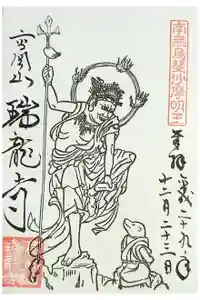 南無烏蒭沙摩明王
奉拝 平成二十九年
十二月二十三日
高岡山 瑞龍寺